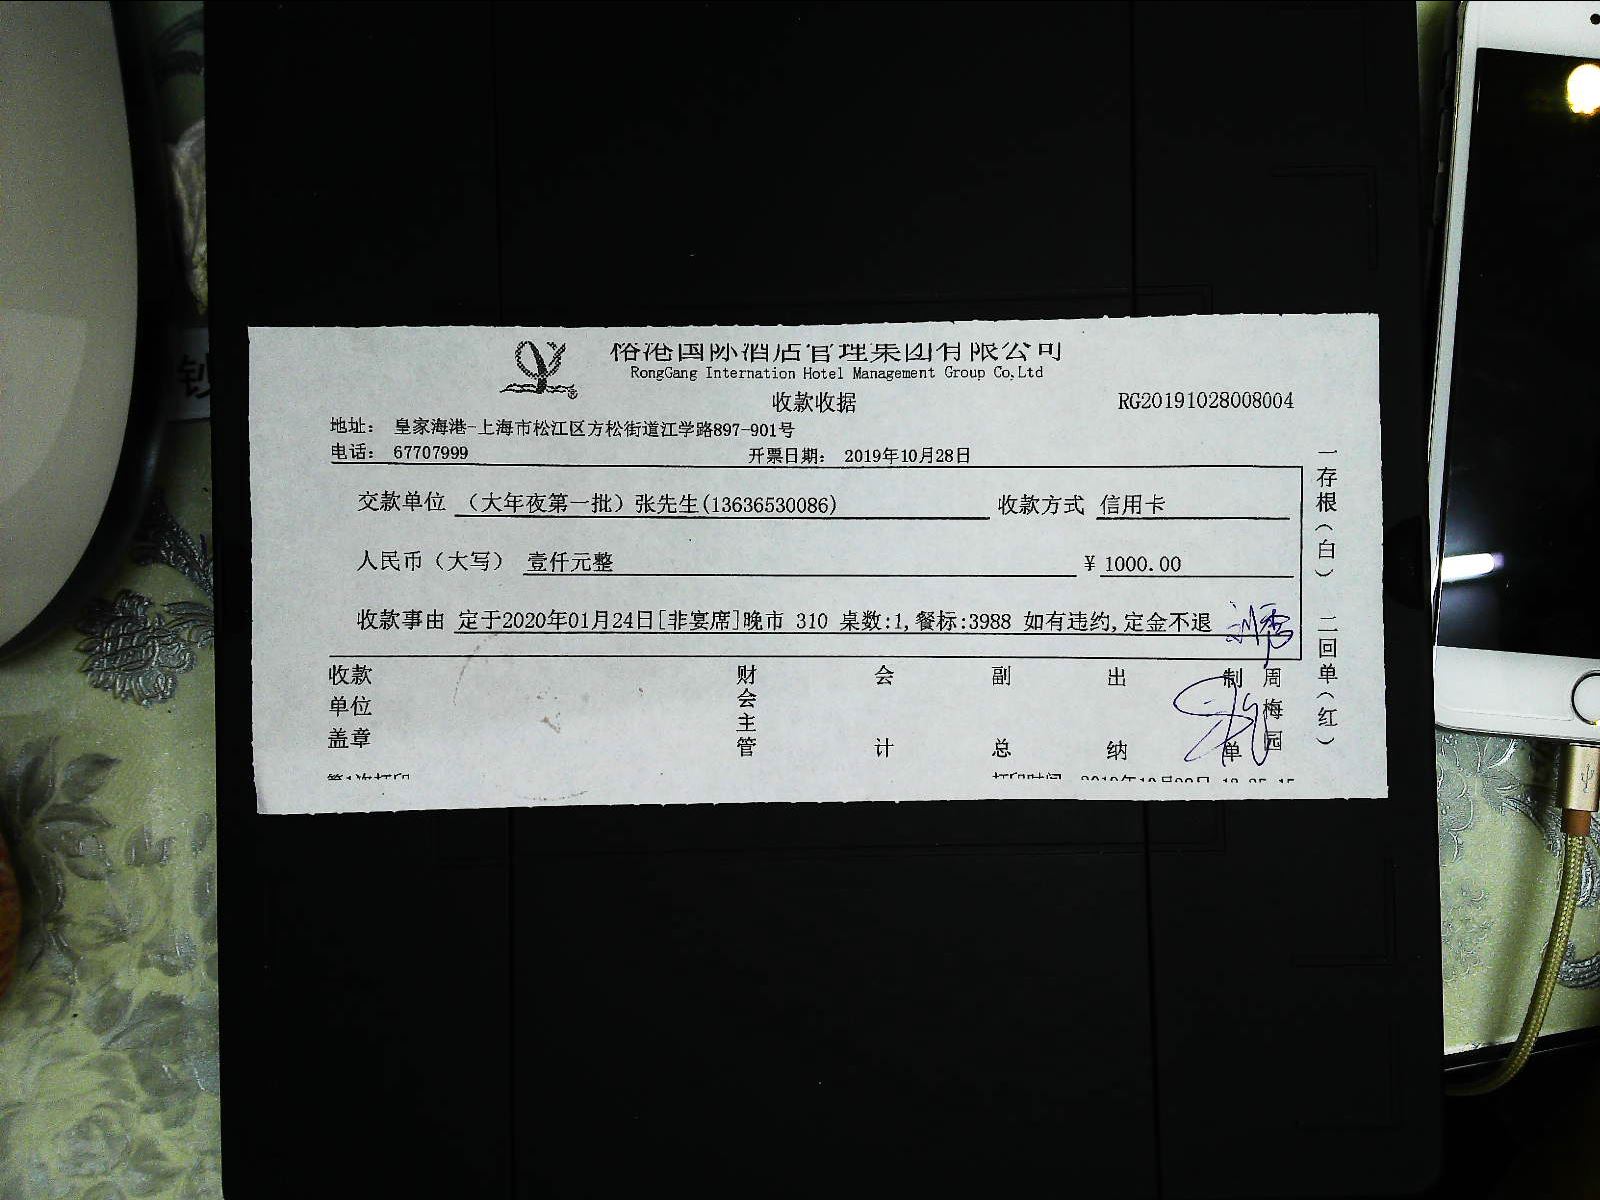 榕港国际酒店管理集团有限公司
RongGang Internation Hotel Management Group Co,Ltd
收款收据
RG20191028008004
地址： 皇家海港-上海市松江区方松街道江学路897-901号
电话： 67707999 开票日期： 2019年10月28日
交款单位 （大年夜第一批）张先生(13636530086) 收款方式 信用卡
人民币（大写） 壹仟元整 ¥ 1000.00
收款事由 定于2020年01月24日[非宴席]晚市 310 桌数:1,餐标:3988 如有违约,定金不退
收款单位盖章
财会主管
会计
副总
出纳
制单
周梅园
一存根（白） 二回单（红）
第1次打印